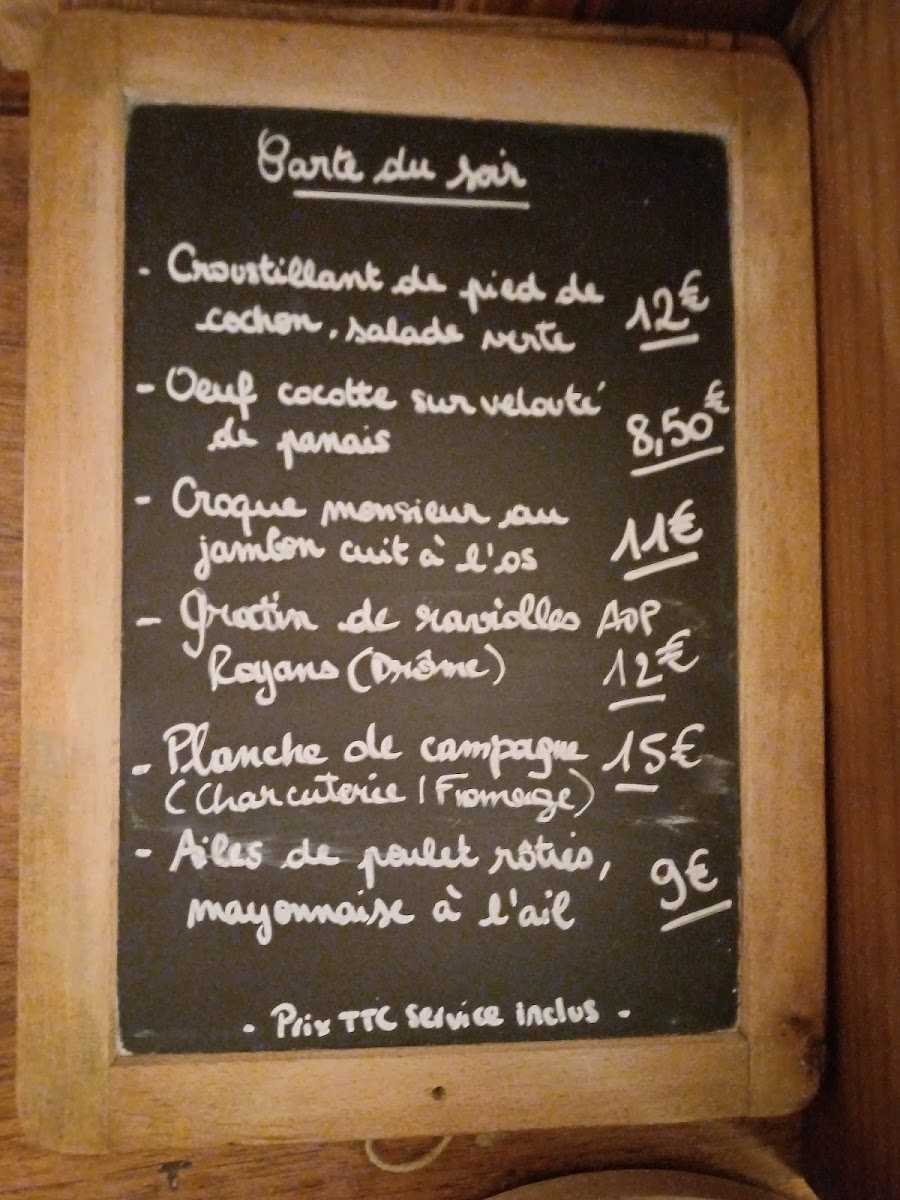 Carte du soir
- Croustillant de pied de
cochon, salade verte 12€
- Oeuf cocotte sur velouté
de panais 8,50€
- Croque monsieur au
jambon cuit à l'os 11€
- Gratin de raviolles AOP
Royans (Drôme) 12€
- Planche de campagne 15€
(Charcuterie / Fromage)
- Ailes de poulet rôties,
mayonnaise à l'ail 9€
- Prix TTC service inclus -